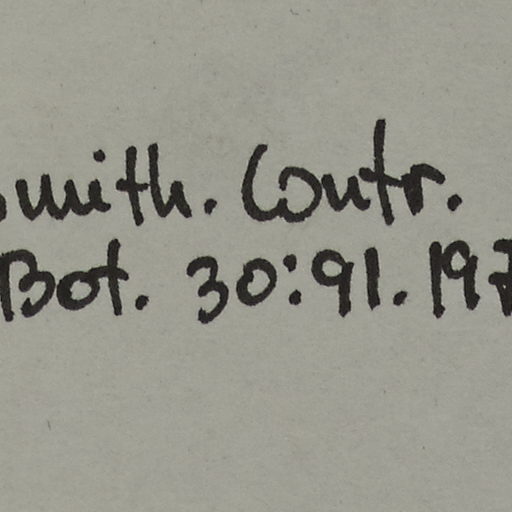 Smith. Contr.
Bot. 30:91. 197